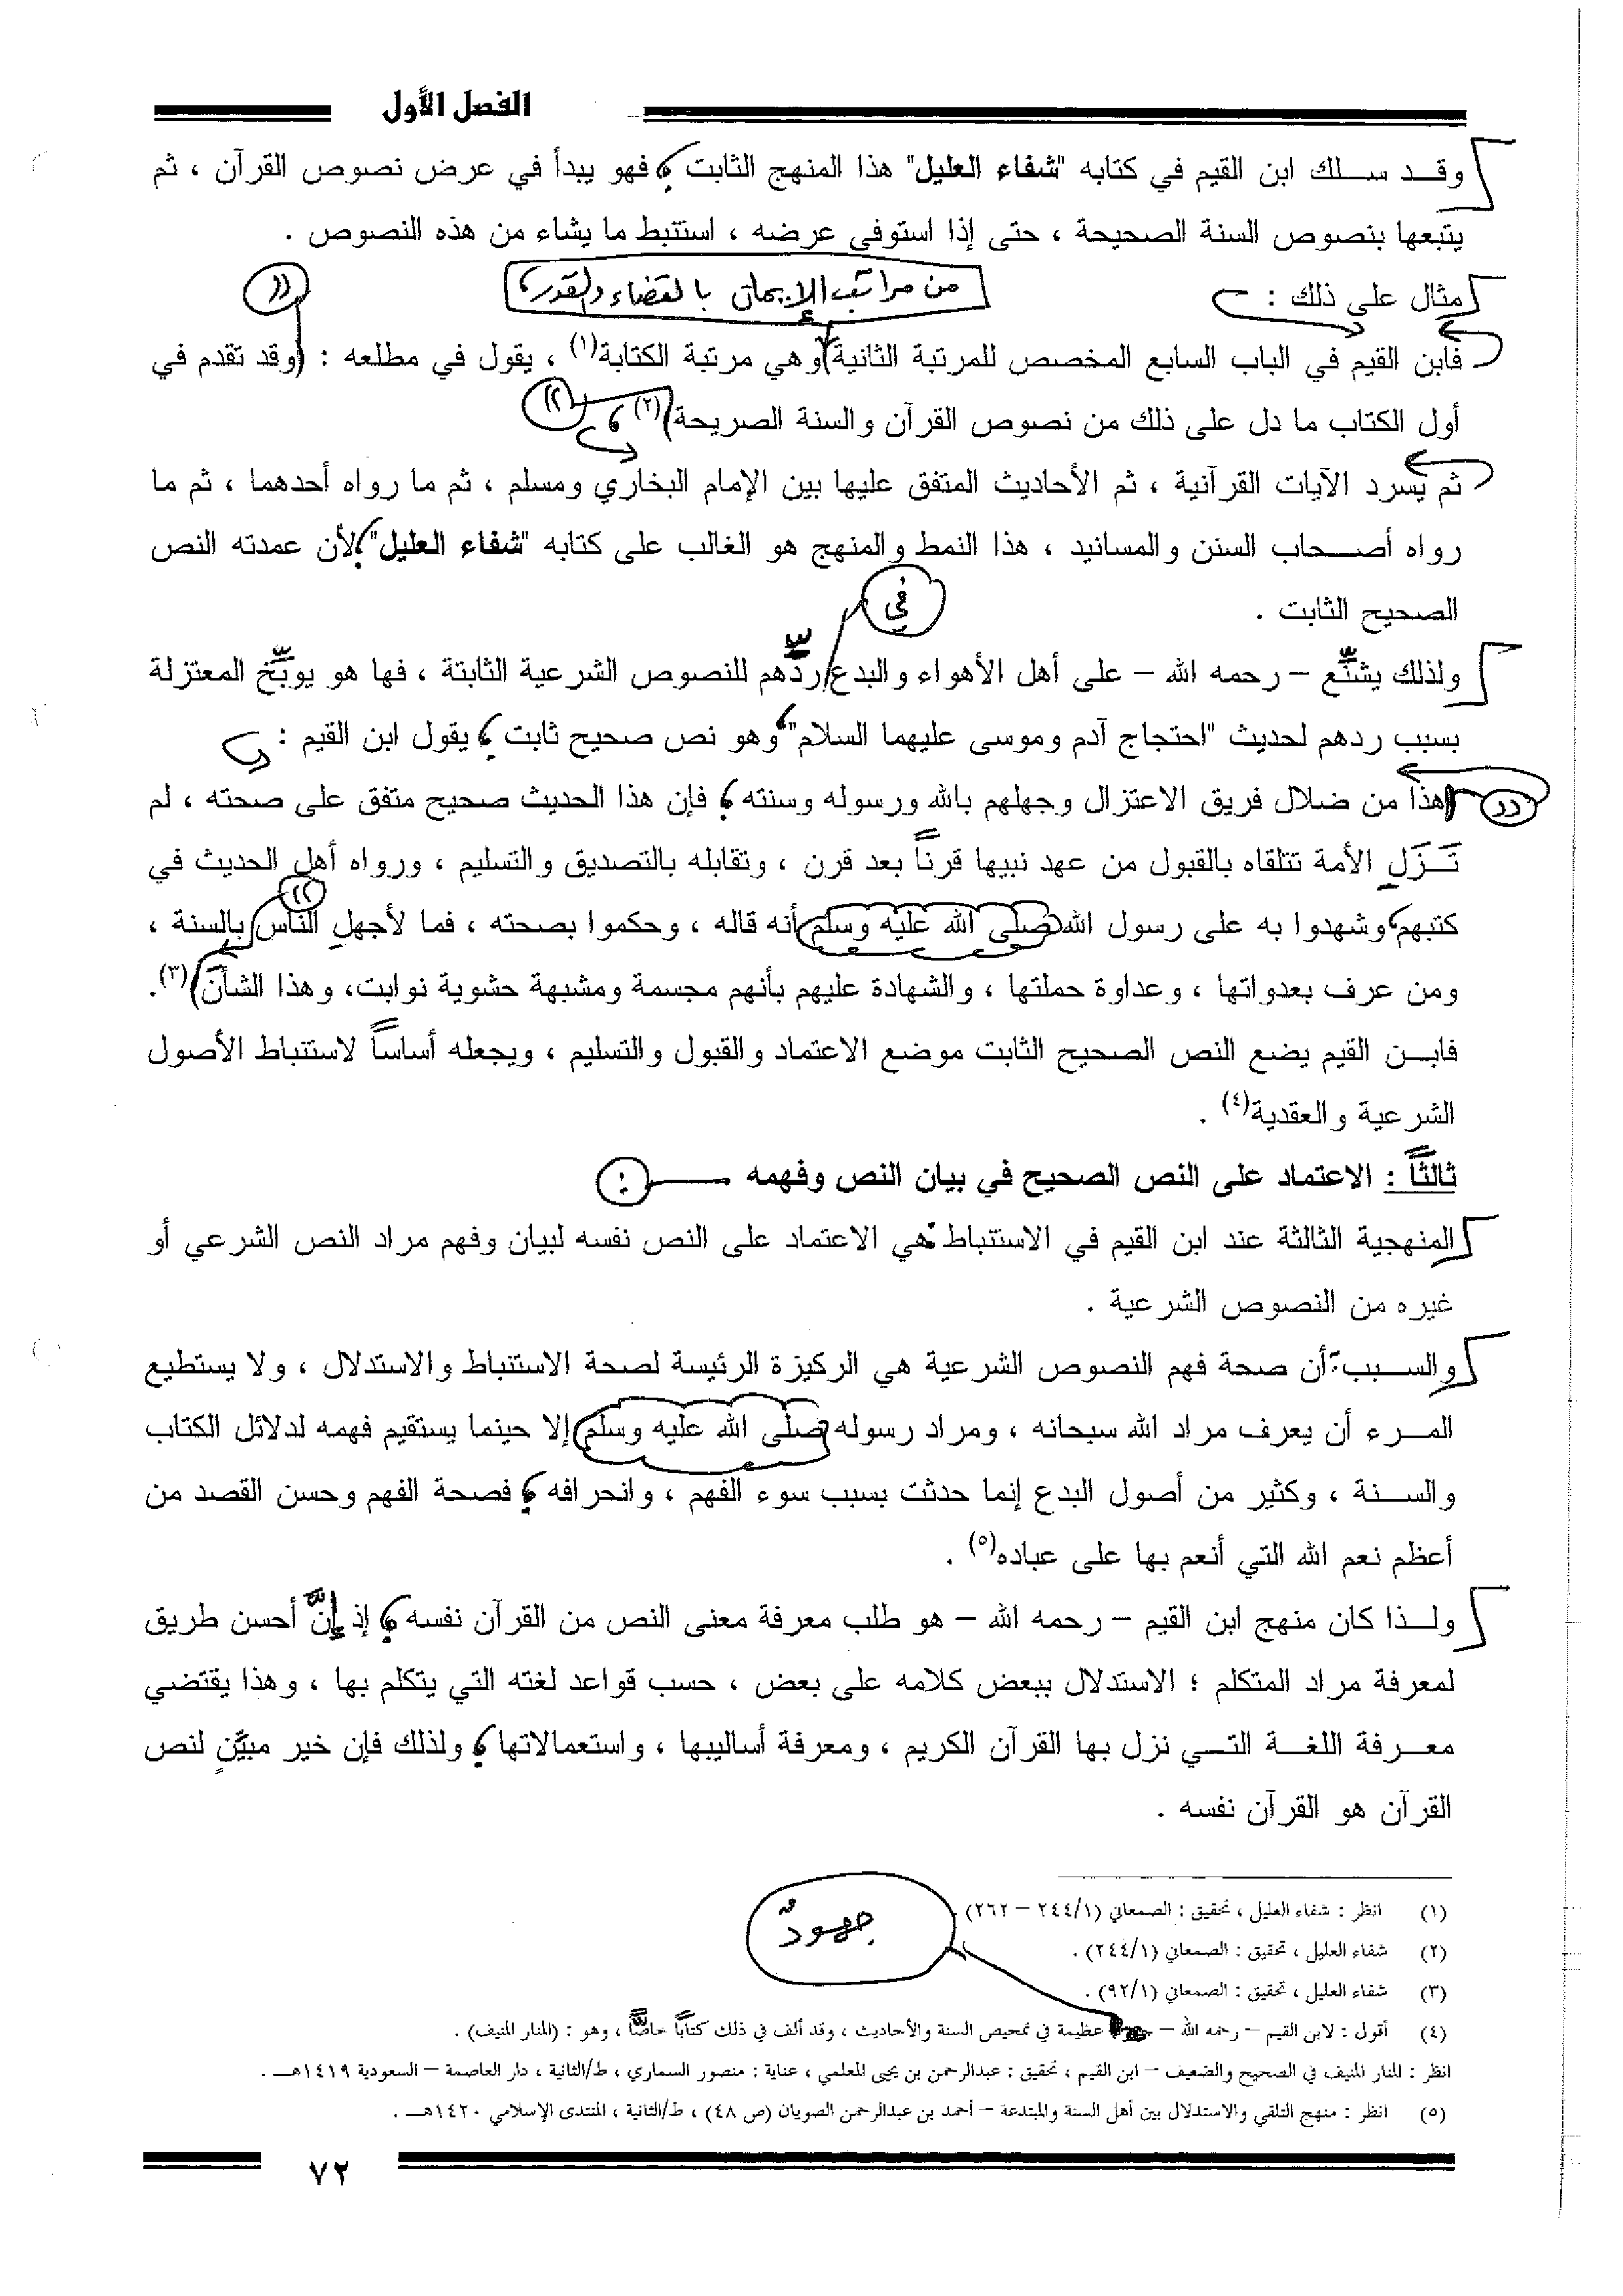 الفصل الأول
وقد سلك ابن القيم في كتابه "شفاء العليل" هذا المنهج الثابت ؛ فهو يبدأ في عرض نصوص القرآن ، ثم
يتبعها بنصوص السنة الصحيحة ، حتى إذا استوفى عرضه ، استنبط ما يشاء من هذه النصوص .
من مراتب الإيمان بالقضاء والقدر،
مثال على ذلك :
((
فابن القيم في الباب السابع المخصص للمرتبة الثانية وهي مرتبة الكتابة(١) ، يقول في مطلعه : (وقد تقدم في
أول الكتاب ما دل على ذلك من نصوص القرآن والسنة الصريحة)(٢) ،
))
ثم يسرد الآيات القرآنية ، ثم الأحاديث المتفق عليها بين الإمام البخاري ومسلم ، ثم ما رواه أحدهما ، ثم ما
رواه أصحاب السنن والمسانيد ، هذا النمط والمنهج هو الغالب على كتابه "شفاء العليل" لأن عمدته النص
الصحيح الثابت .
في
ولذلك يشنّع – رحمه الله – على أهل الأهواء والبدع ردّهم للنصوص الشرعية الثابتة ، فها هو يوبّخ المعتزلة
بسبب ردهم لحديث "احتجاج آدم وموسى عليهما السلام" وهو نص صحيح ثابت ؛ يقول ابن القيم :
(هذا من ضلال فريق الاعتزال وجهلهم بالله ورسوله وسنته ؛ فإن هذا الحديث صحيح متفق على صحته ، لم
تَزَلِ الأمة تتلقاه بالقبول من عهد نبيها قرناً بعد قرن ، وتقابله بالتصديق والتسليم ، ورواه أهل الحديث في
كتبهم وشهدوا به على رسول الله صلى الله عليه وسلم أنه قاله ، وحكموا بصحته ، فما لأجهلِ الناس بالسنة ،
ومن عرف بعدواتها ، وعداوة حملتها ، والشهادة عليهم بأنهم مجسمة ومشبهة حشوية نوابت، وهذا الشأن)(٣).
فابن القيم يضع النص الصحيح الثابت موضع الاعتماد والقبول والتسليم ، ويجعله أساساً لاستنباط الأصول
الشرعية والعقدية(٤) .
ثالثاً : الاعتماد على النص الصحيح في بيان النص وفهمه :
المنهجية الثالثة عند ابن القيم في الاستنباط هي الاعتماد على النص نفسه لبيان وفهم مراد النص الشرعي أو
غيره من النصوص الشرعية .
والسبب: أن صحة فهم النصوص الشرعية هي الركيزة الرئيسة لصحة الاستنباط والاستدلال ، ولا يستطيع
المرء أن يعرف مراد الله سبحانه ، ومراد رسوله صلى الله عليه وسلم إلا حينما يستقيم فهمه لدلائل الكتاب
والسنة ، وكثير من أصول البدع إنما حدثت بسبب سوء الفهم ، وانحرافه ؛ فصحة الفهم وحسن القصد من
أعظم نعم الله التي أنعم بها على عباده(٥) .
ولذا كان منهج ابن القيم – رحمه الله – هو طلب معرفة معنى النص من القرآن نفسه ؛ إذ إنّ أحسن طريق
لمعرفة مراد المتكلم ؛ الاستدلال ببعض كلامه على بعض ، حسب قواعد لغته التي يتكلم بها ، وهذا يقتضي
معرفة اللغة التي نزل بها القرآن الكريم ، ومعرفة أساليبها ، واستعمالاتها ؛ ولذلك فإن خير مبيّنٍ لنص
القرآن هو القرآن نفسه .
(١) انظر : شفاء العليل ، تحقيق : الصمعاني (٢٤٤/١ – ٢٦٢) .
جهودٌ
(٢) شفاء العليل ، تحقيق : الصمعاني (٢٤٤/١) .
(٣) شفاء العليل ، تحقيق : الصمعاني (٩٢/١) .
(٤) أقول : لابن القيم – رحمه الله – عظيمة في تمحيص السنة والأحاديث ، وقد ألف في ذلك كتاباً خاصّاً ، وهو : (المنار المنيف) .
انظر : المنار المنيف في الصحيح والضعيف – ابن القيم ، تحقيق : عبدالرحمن بن يحيى المعلمي ، عناية : منصور السماري ، ط/الثانية ، دار العاصمة – السعودية ١٤١٩هـ .
(٥) انظر : منهج التلقي والاستدلال بين أهل السنة والمبتدعة – أحمد بن عبدالرحمن الصويان (ص ٤٨) ، ط/الثانية ، المنتدى الإسلامي ١٤٢٠هـ .
٧٢